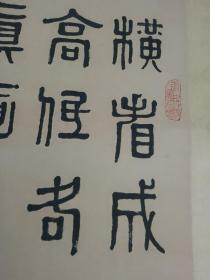 橫看成
高低各
真面